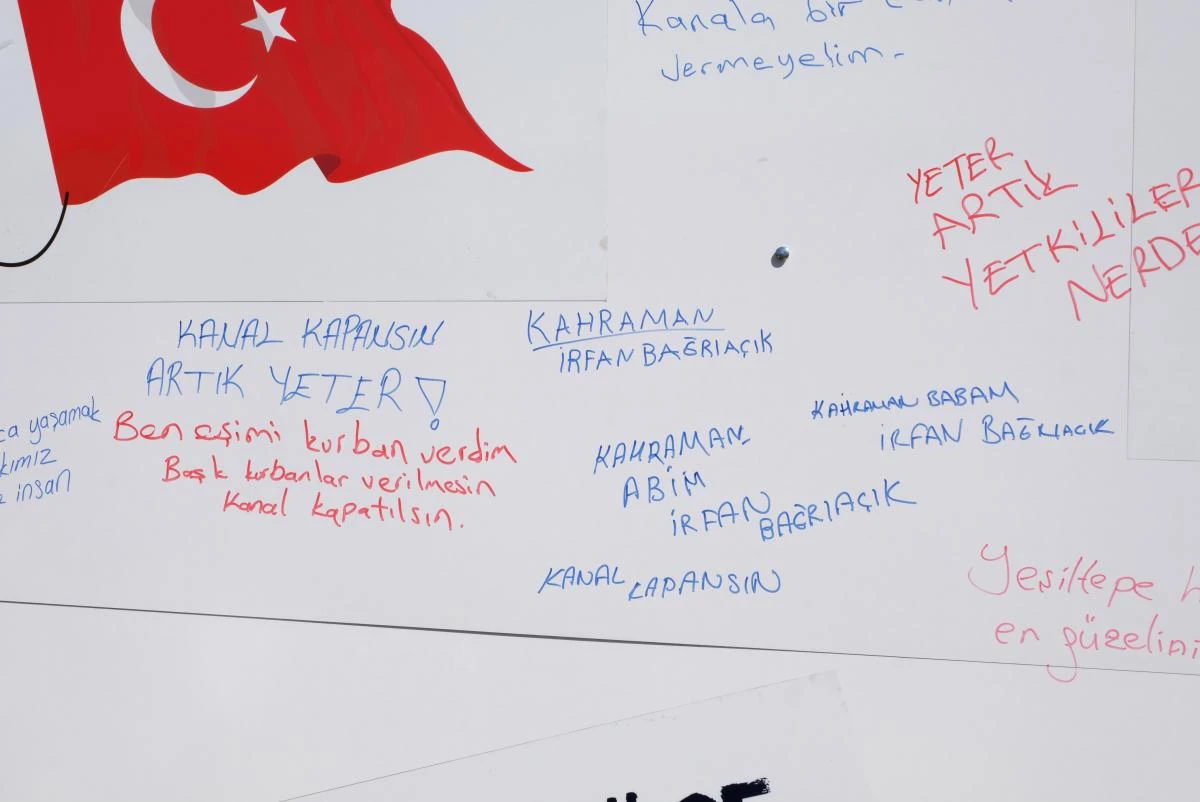 Kanala bir
vermeyelim.
YETER
ARTIK
YETKİLİLER
NERDE
KANAL KAPANSIN
ARTIK YETER!
KAHRAMAN
İRFAN BAĞRIAÇIK
ca yaşamak
kımız
insan
Ben eşimi kurban verdim
Başk kurbanlar verilmesin
Kanal kapatılsın.
KAHRAMAN BABAM
İRFAN BAĞRIAÇIK
KAHRAMAN
ABİM
İRFAN
BAĞRIAÇIK
KANAL KAPANSIN
Yeşiltepe h
en güzelini